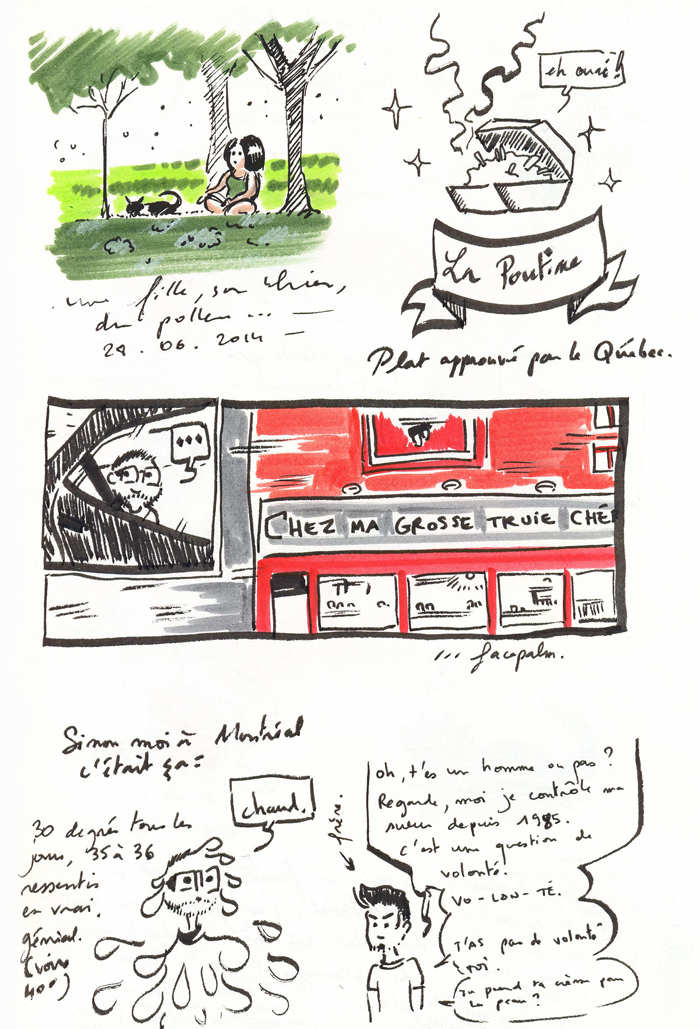 une fille, son chien,
du pollen ...
28.06.2014
eh ouais!!
La Poutine
Plat approuvé par le Québec.
...
CHEZ MA GROSSE TRUIE CHÉR
... facepalm.
Sinon moi à Montréal
c'était ça :
30 degrés tous les
jours, 35 à 36
ressentis
en vrai.
génial.
(voire
40°)
chaud.!
frère.
Oh, t'es un homme ou pas ?
Regarde, moi je contrôle ma
sueur depuis 1985.
c'est une question de
volonté.
VO-LON-TÉ.
T'AS pas de volonté
toi.
Tu prend ta crème pour
la peau ?